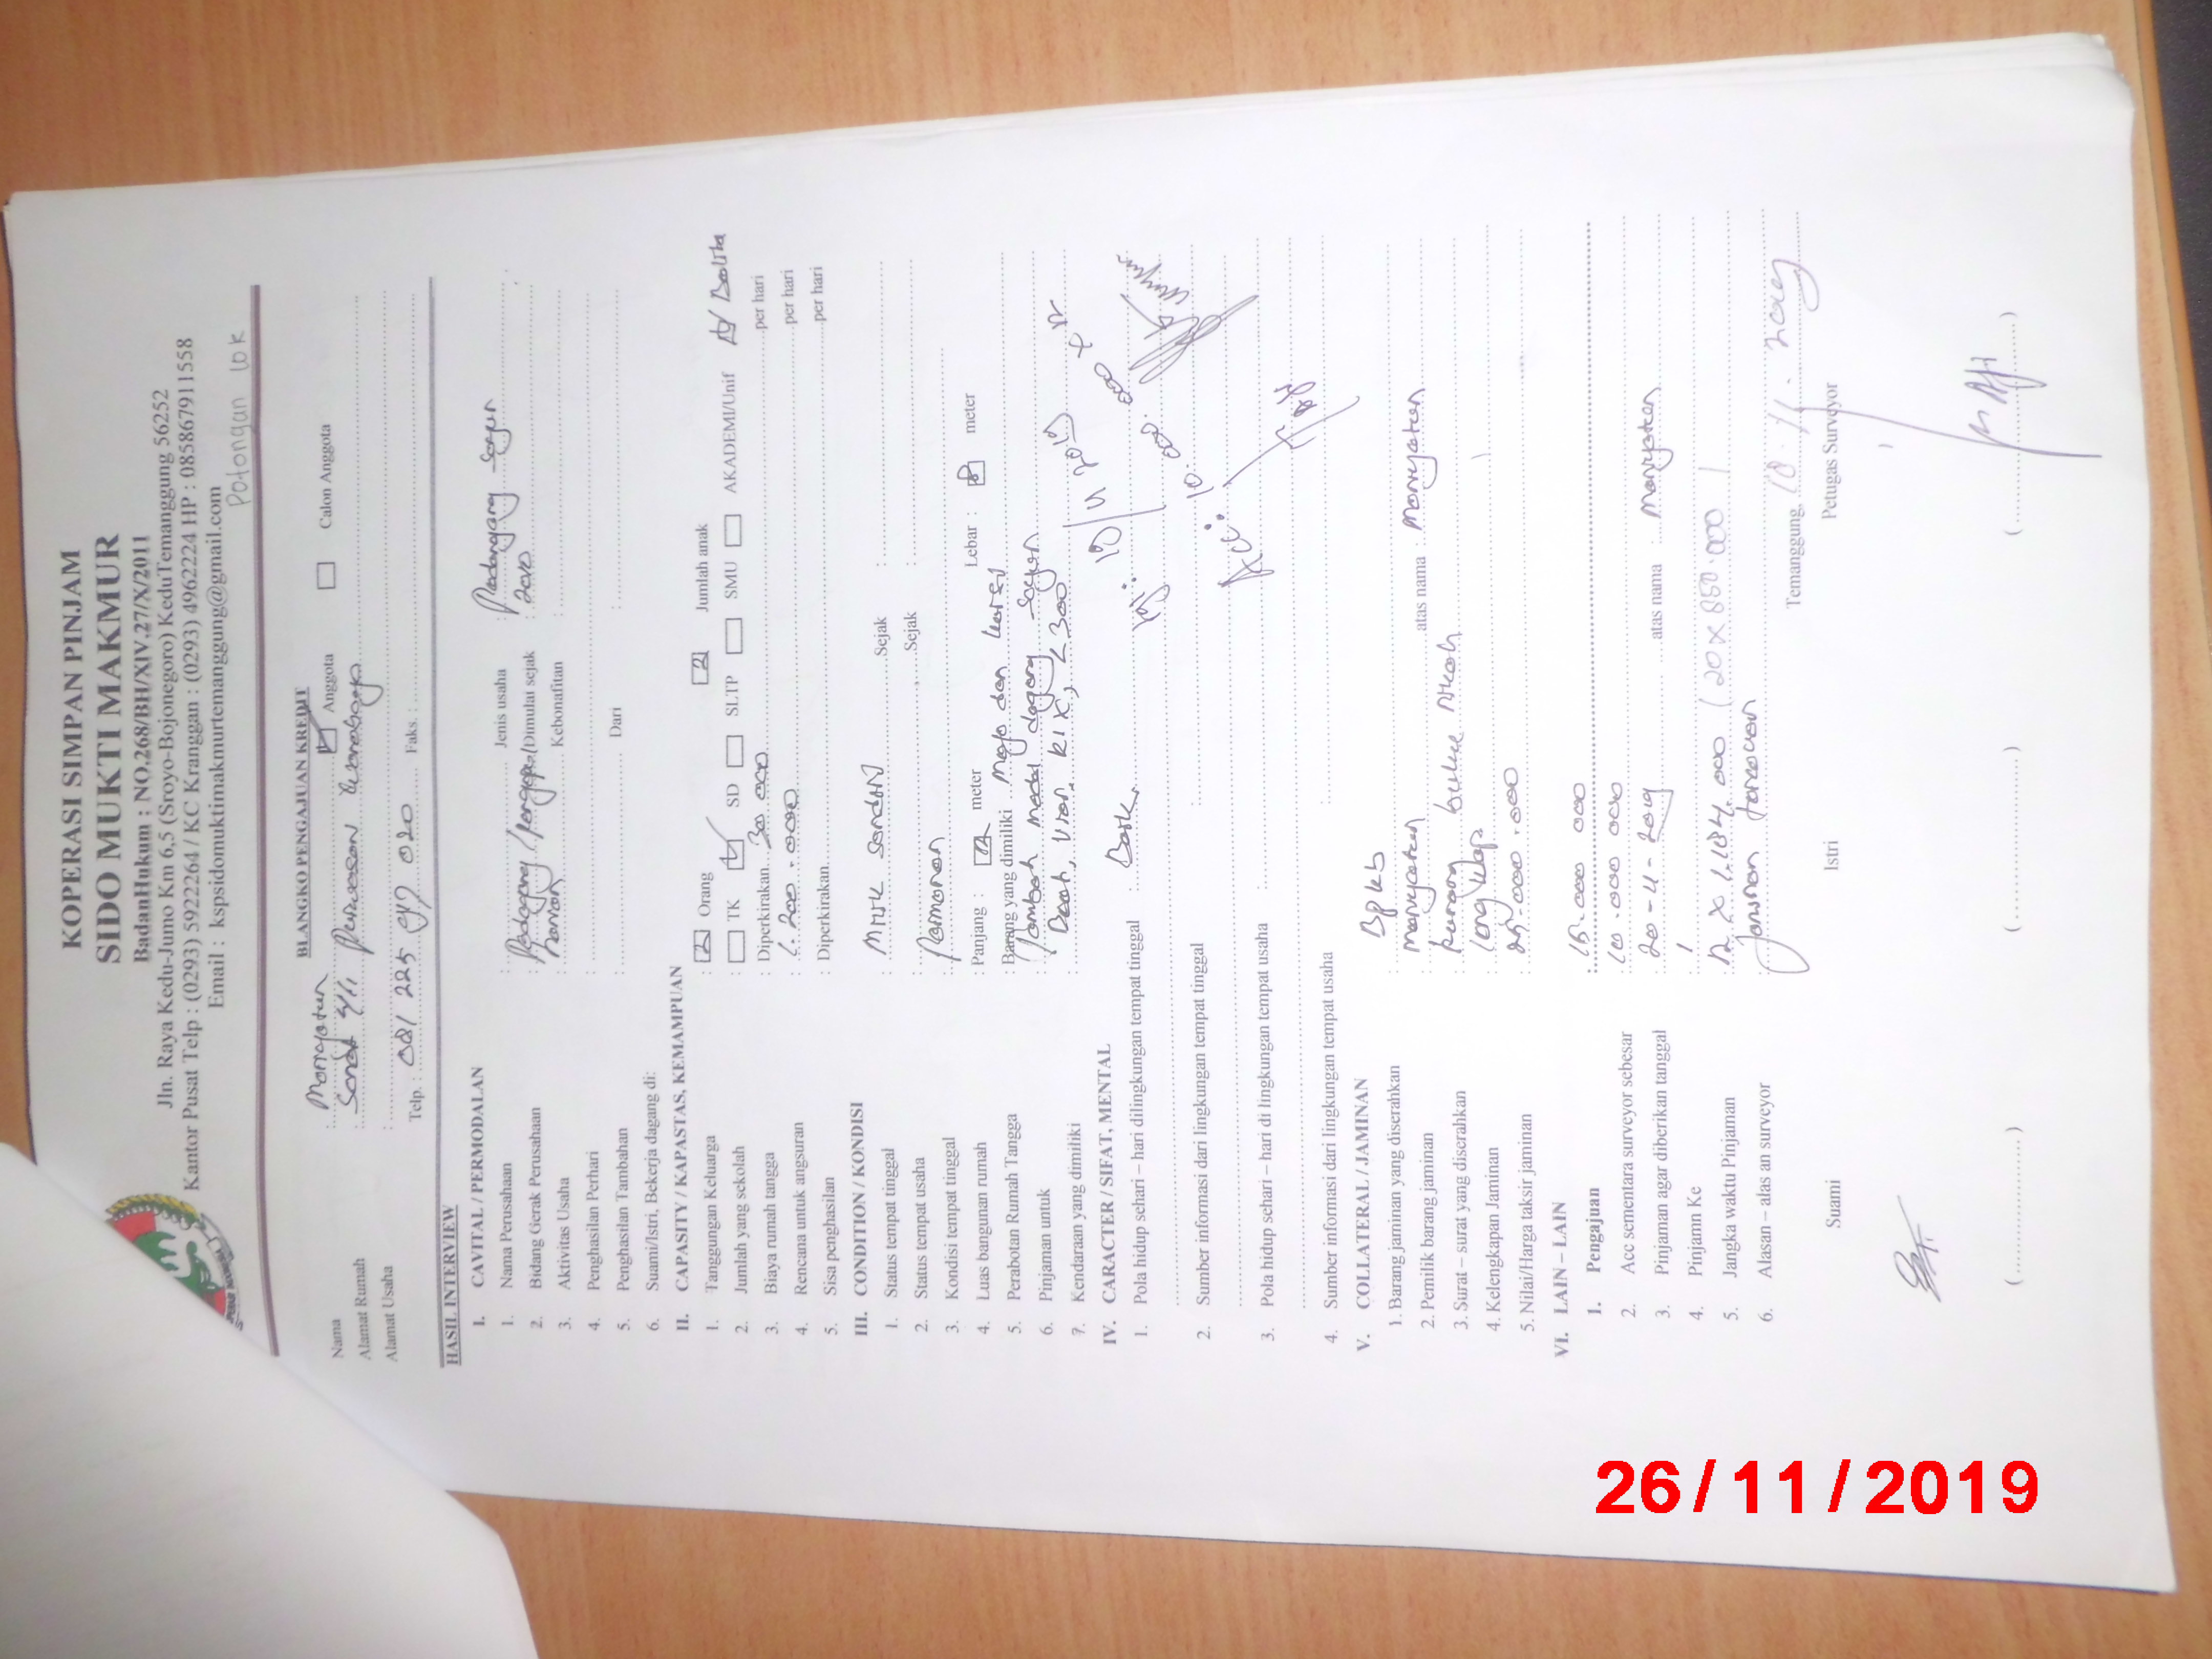 KOPERASI SIMPAN PINJAM
SIDO MUKTI MAKMUR
BadanHukum : NO.268/BH/XIV.27/X/2011
Jln. Raya Kedu-Jumo Km 6,5 (Sroyo-Bojonegoro) KeduTemanggung 56252
Kantor Pusat Telp : (0293) 5922264 / KC Kranggan : (0293) 4962224 HP : 085867911558
Email : kspsidomuktimakmurtemanggung@gmail.com
Potongan WK
BLANGKO PENGAJUAN KREDIT
Nama : Anggota Calon Anggota
Alamat Rumah :
Alamat Usaha :
Telp. : 081 225 Faks. :
HASIL INTERVIEW
I. CAVITAL / PERMODALAN
1. Nama Perusahaan : Jenis usaha : Pedagang sayur
2. Bidang Gerak Perusahaan : Pedagang / Dimulai sejak : 2010
3. Aktivitas Usaha Kebonafitan :
4. Penghasilan Perhari :
5. Penghasilan Tambahan : Dari :
6. Suami/Istri, Bekerja dagang di:
II. CAPASITY / KAPASTAS, KEMAMPUAN
1. Tanggungan Keluarga : 2 Orang 2 Jumlah anak
2. Jumlah yang sekolah : TK SD SLTP SMU AKADEMI/Unif Balita
3. Biaya rumah tangga : Diperkirakan 300 000 per hari
4. Rencana untuk angsuran : 1.200.000 per hari
5. Sisa penghasilan : Diperkirakan per hari
III. CONDITION / KONDISI
1. Status tempat tinggal Milik sendiri Sejak :
2. Status tempat usaha : Sejak :
3. Kondisi tempat tinggal : Permanen
4. Luas bangunan rumah : Panjang : meter Lebar : 8 meter
5. Perabotan Rumah Tangga Barang yang dimiliki : Meja dan kursi
6. Pinjaman untuk : Tambah modal dagang sayur
7. Kendaraan yang dimiliki : RIX, L 300
IV. CARACTER / SIFAT, MENTAL
1. Pola hidup sehari – hari dilingkungan tempat tinggal : Baik.
2. Sumber informasi dari lingkungan tempat tinggal :
3. Pola hidup sehari – hari di lingkungan tempat usaha :
4. Sumber informasi dari lingkungan tempat usaha :
V. COLLATERAL / JAMINAN
1. Barang jaminan yang diserahkan : BPKB
2. Pemilik barang jaminan : Maryatun atas nama : Maryatun
3. Surat – surat yang diserahkan : Kurang buku nikah
4. Kelengkapan Jaminan : lengkap
5. Nilai/Harga taksir jaminan : 25.000.000
VI. LAIN – LAIN
1. Pengajuan : 15.000 000
2. Acc sementara surveyor sebesar : 10.000 000
3. Pinjaman agar diberikan tanggal : 20 - 11 - 2019 atas nama : Maryatun
4. Pinjamn Ke : 1
5. Jangka waktu Pinjaman : 12 x 1.184.000 (20 x 850.000)
6. Alasan – alas an surveyor : Jaminan
Temanggung,
Suami Istri Petugas Surveyor
(..............) (..............) (..............)
26/11/2019